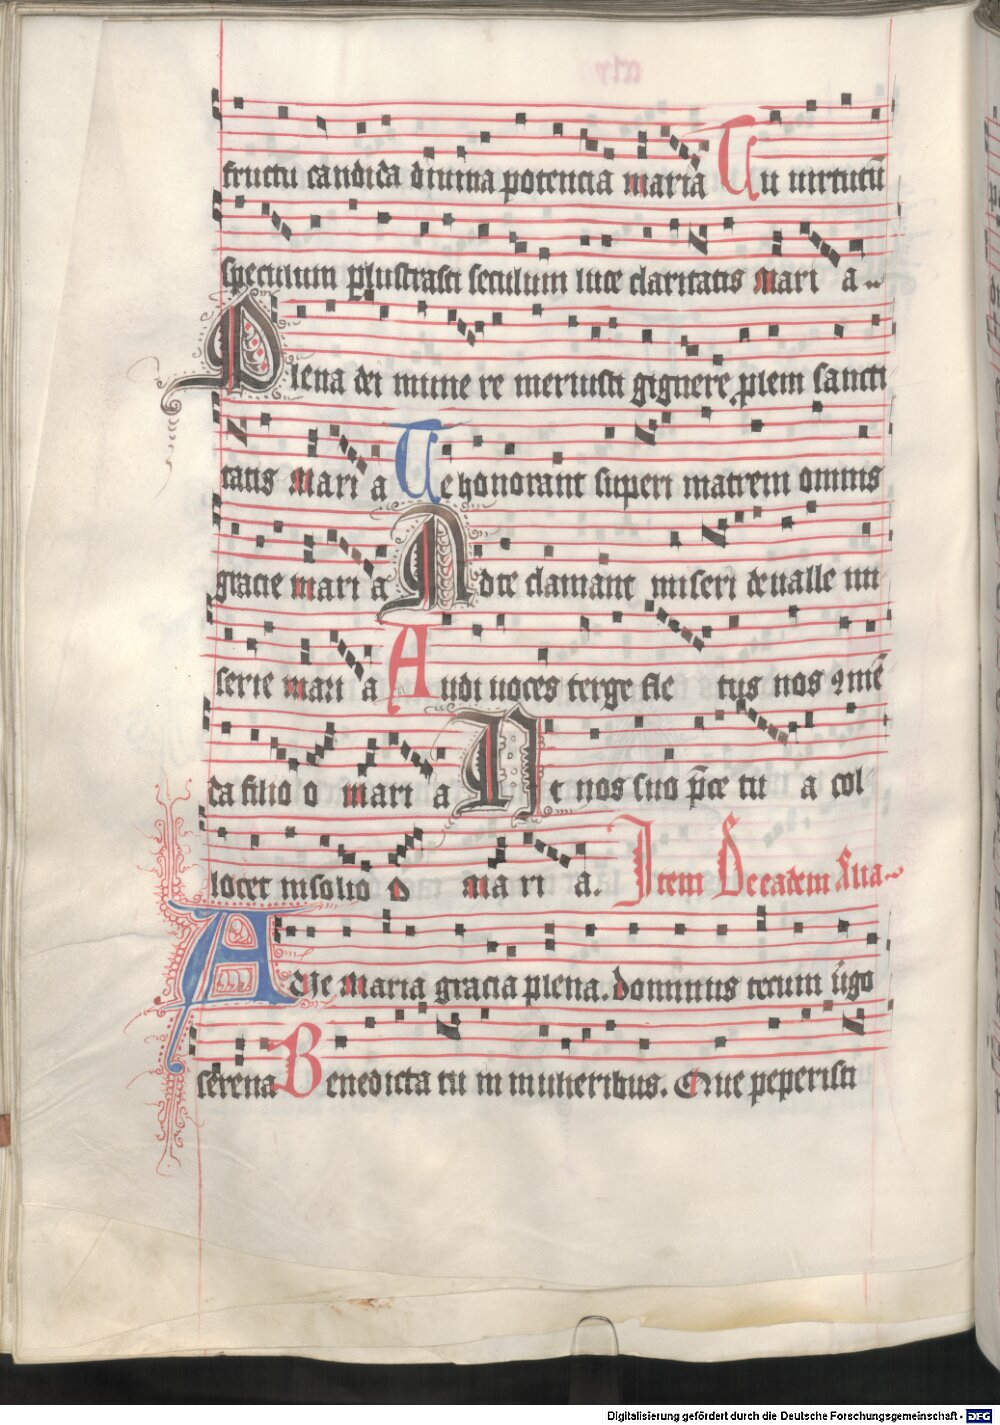 fructu candida diuina potencia maria Tu uirtutū
speculum plustrasti seculum luce claritatis mari a
Plena dei mune re meruisti gignere plem sancti
tatis mari a Te honorant superi matrem omnis
gracie mari a Ad te clamant miseri de ualle mi
serie mari a Audi uoces terge fle tus nos ꝯmē
da filio o mari a Ne nos suo p̄ce tu a col
locet in solio o ma ri a. Item De eadem Alia
AVe maria gracia plena. dominus tecum ū̇go
serena Benedicta tu in mulieribus. Que peperisti
Digitalisierung gefördert durch die Deutsche Forschungsgemeinschaft - DFG